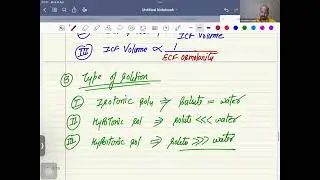 Untitled Notebook
ICF Volume
III ICF Volume ∝ 1
ECF osmolarity
B Type of solution
I Isotonic solu ⇒ solute = water
II Hypotonic sol ⇒ solute <<< water
III sol ⇒ solute >>> water